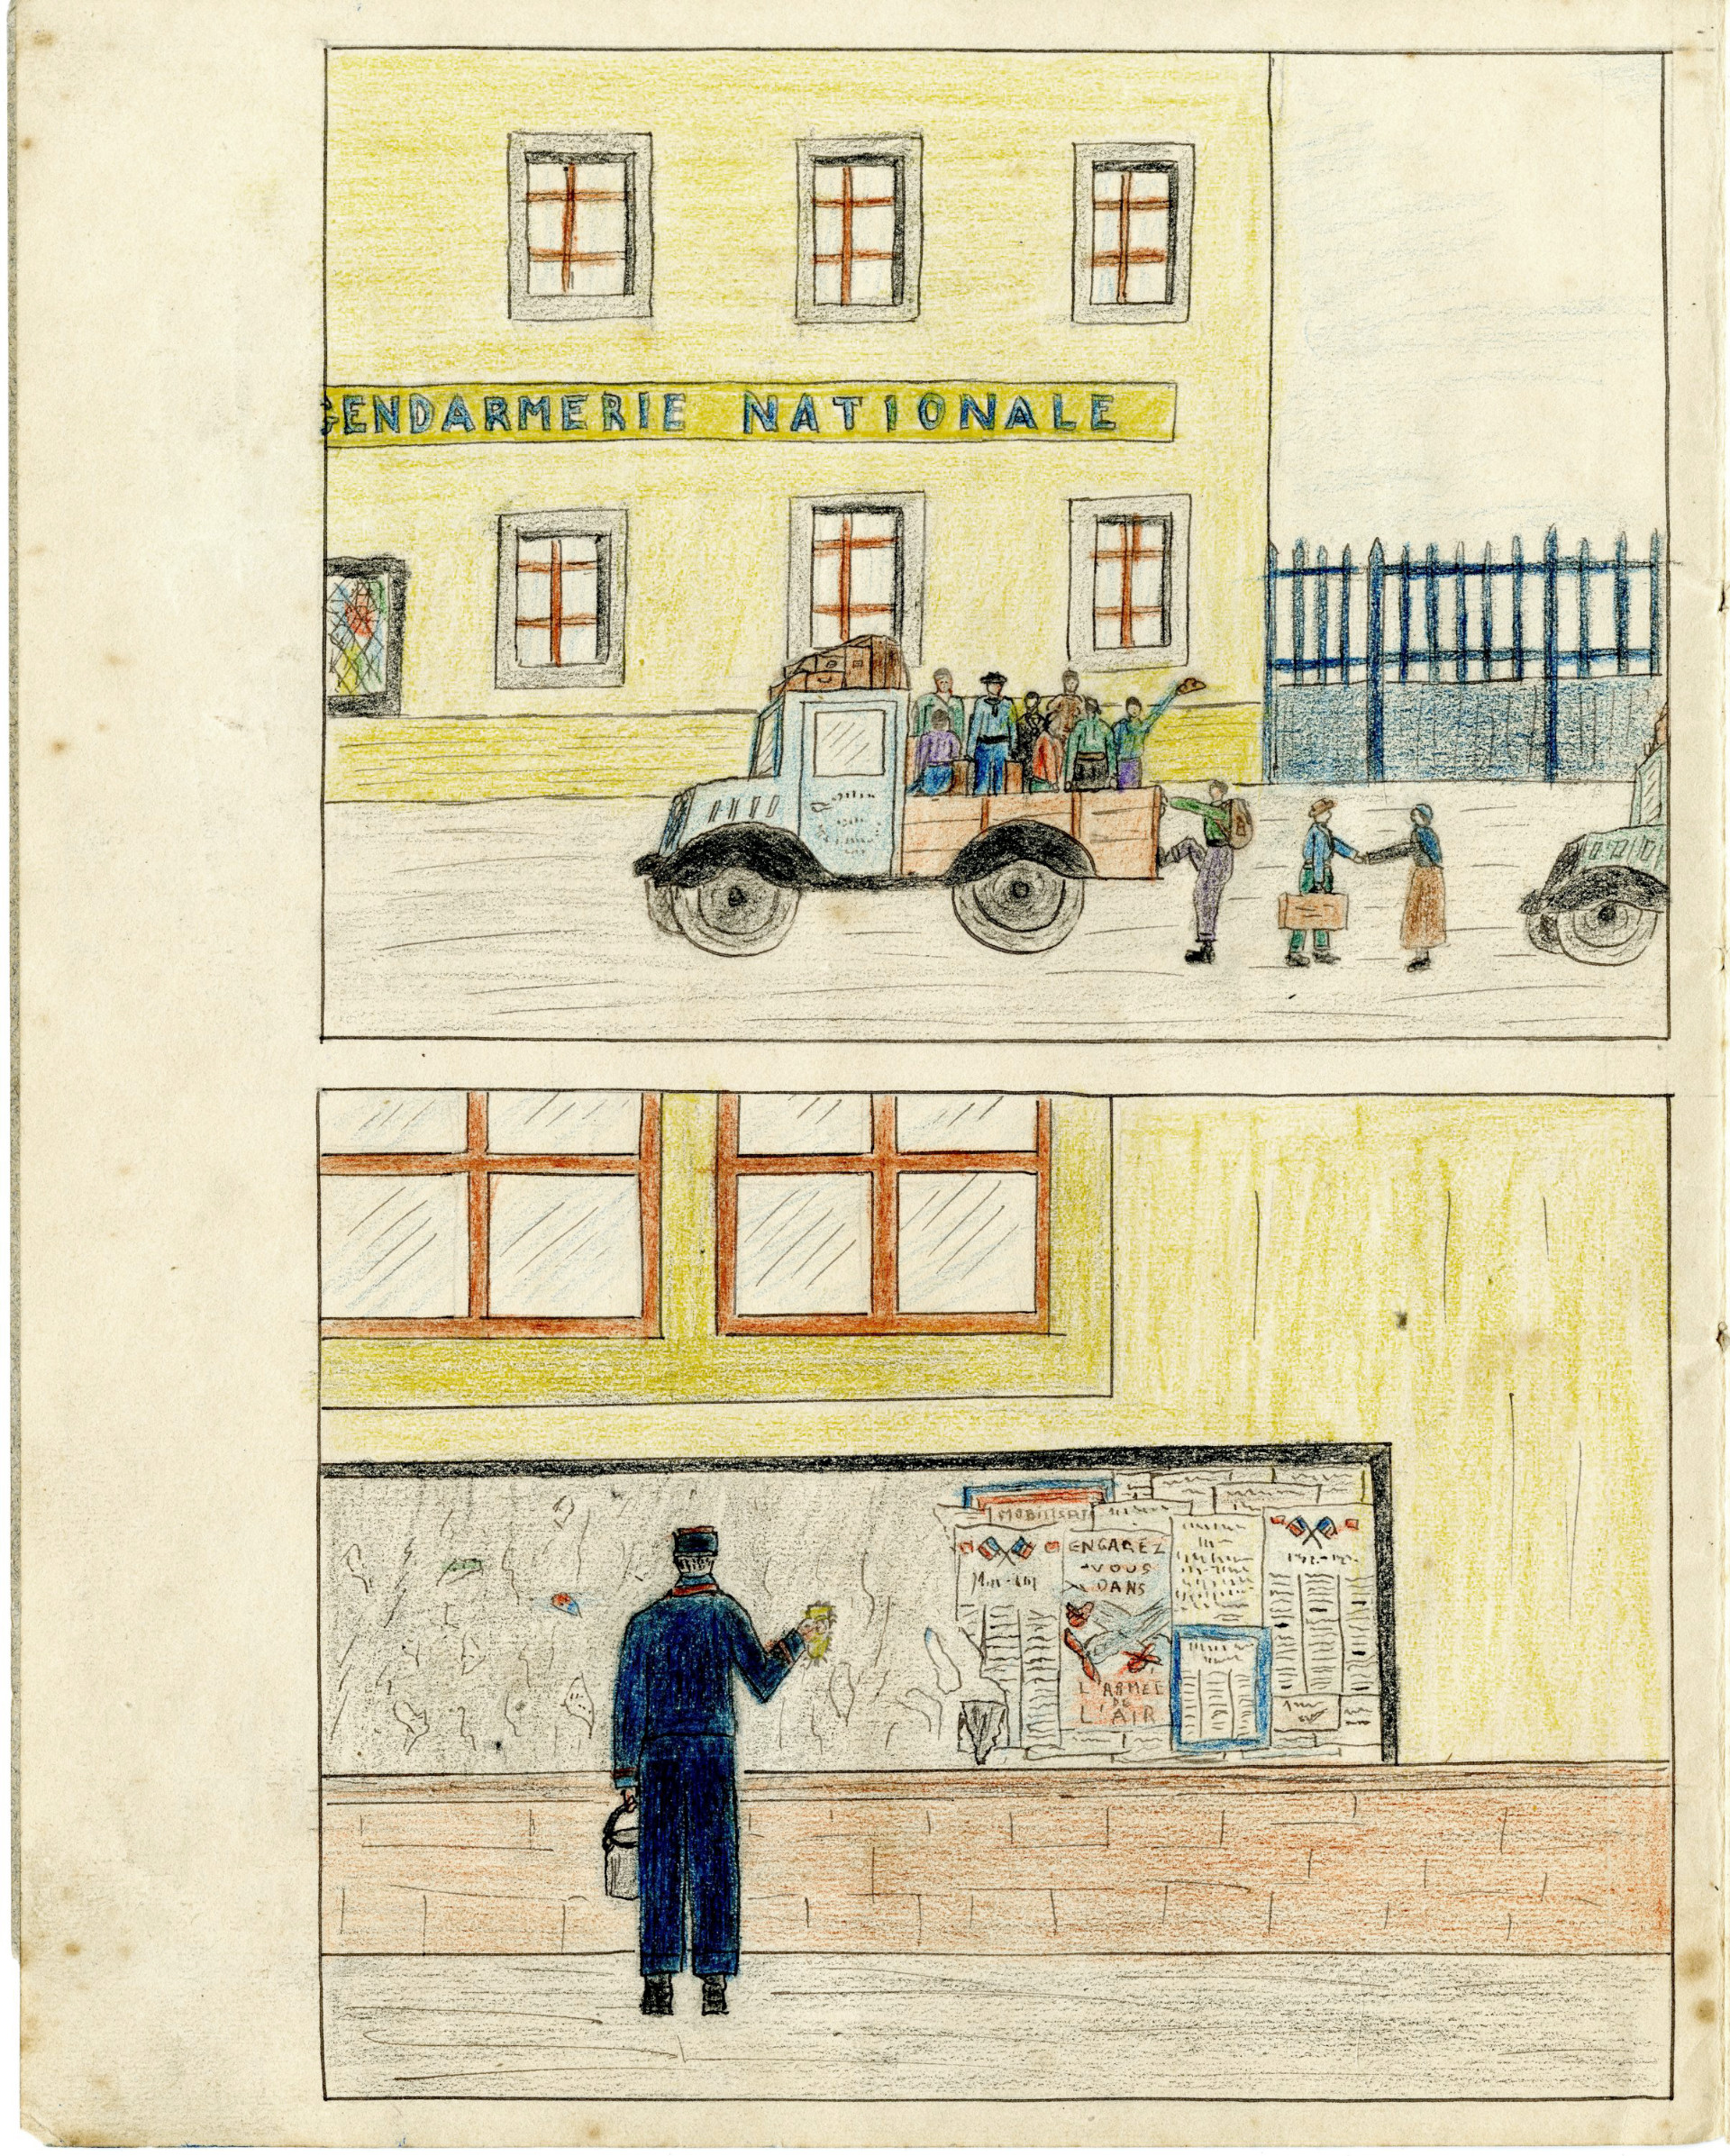 GENDARMERIE NATIONALE
MOBILISATI
ENGAGEZ
-VOUS
DANS
L'ARMEE
DE
L'AIR